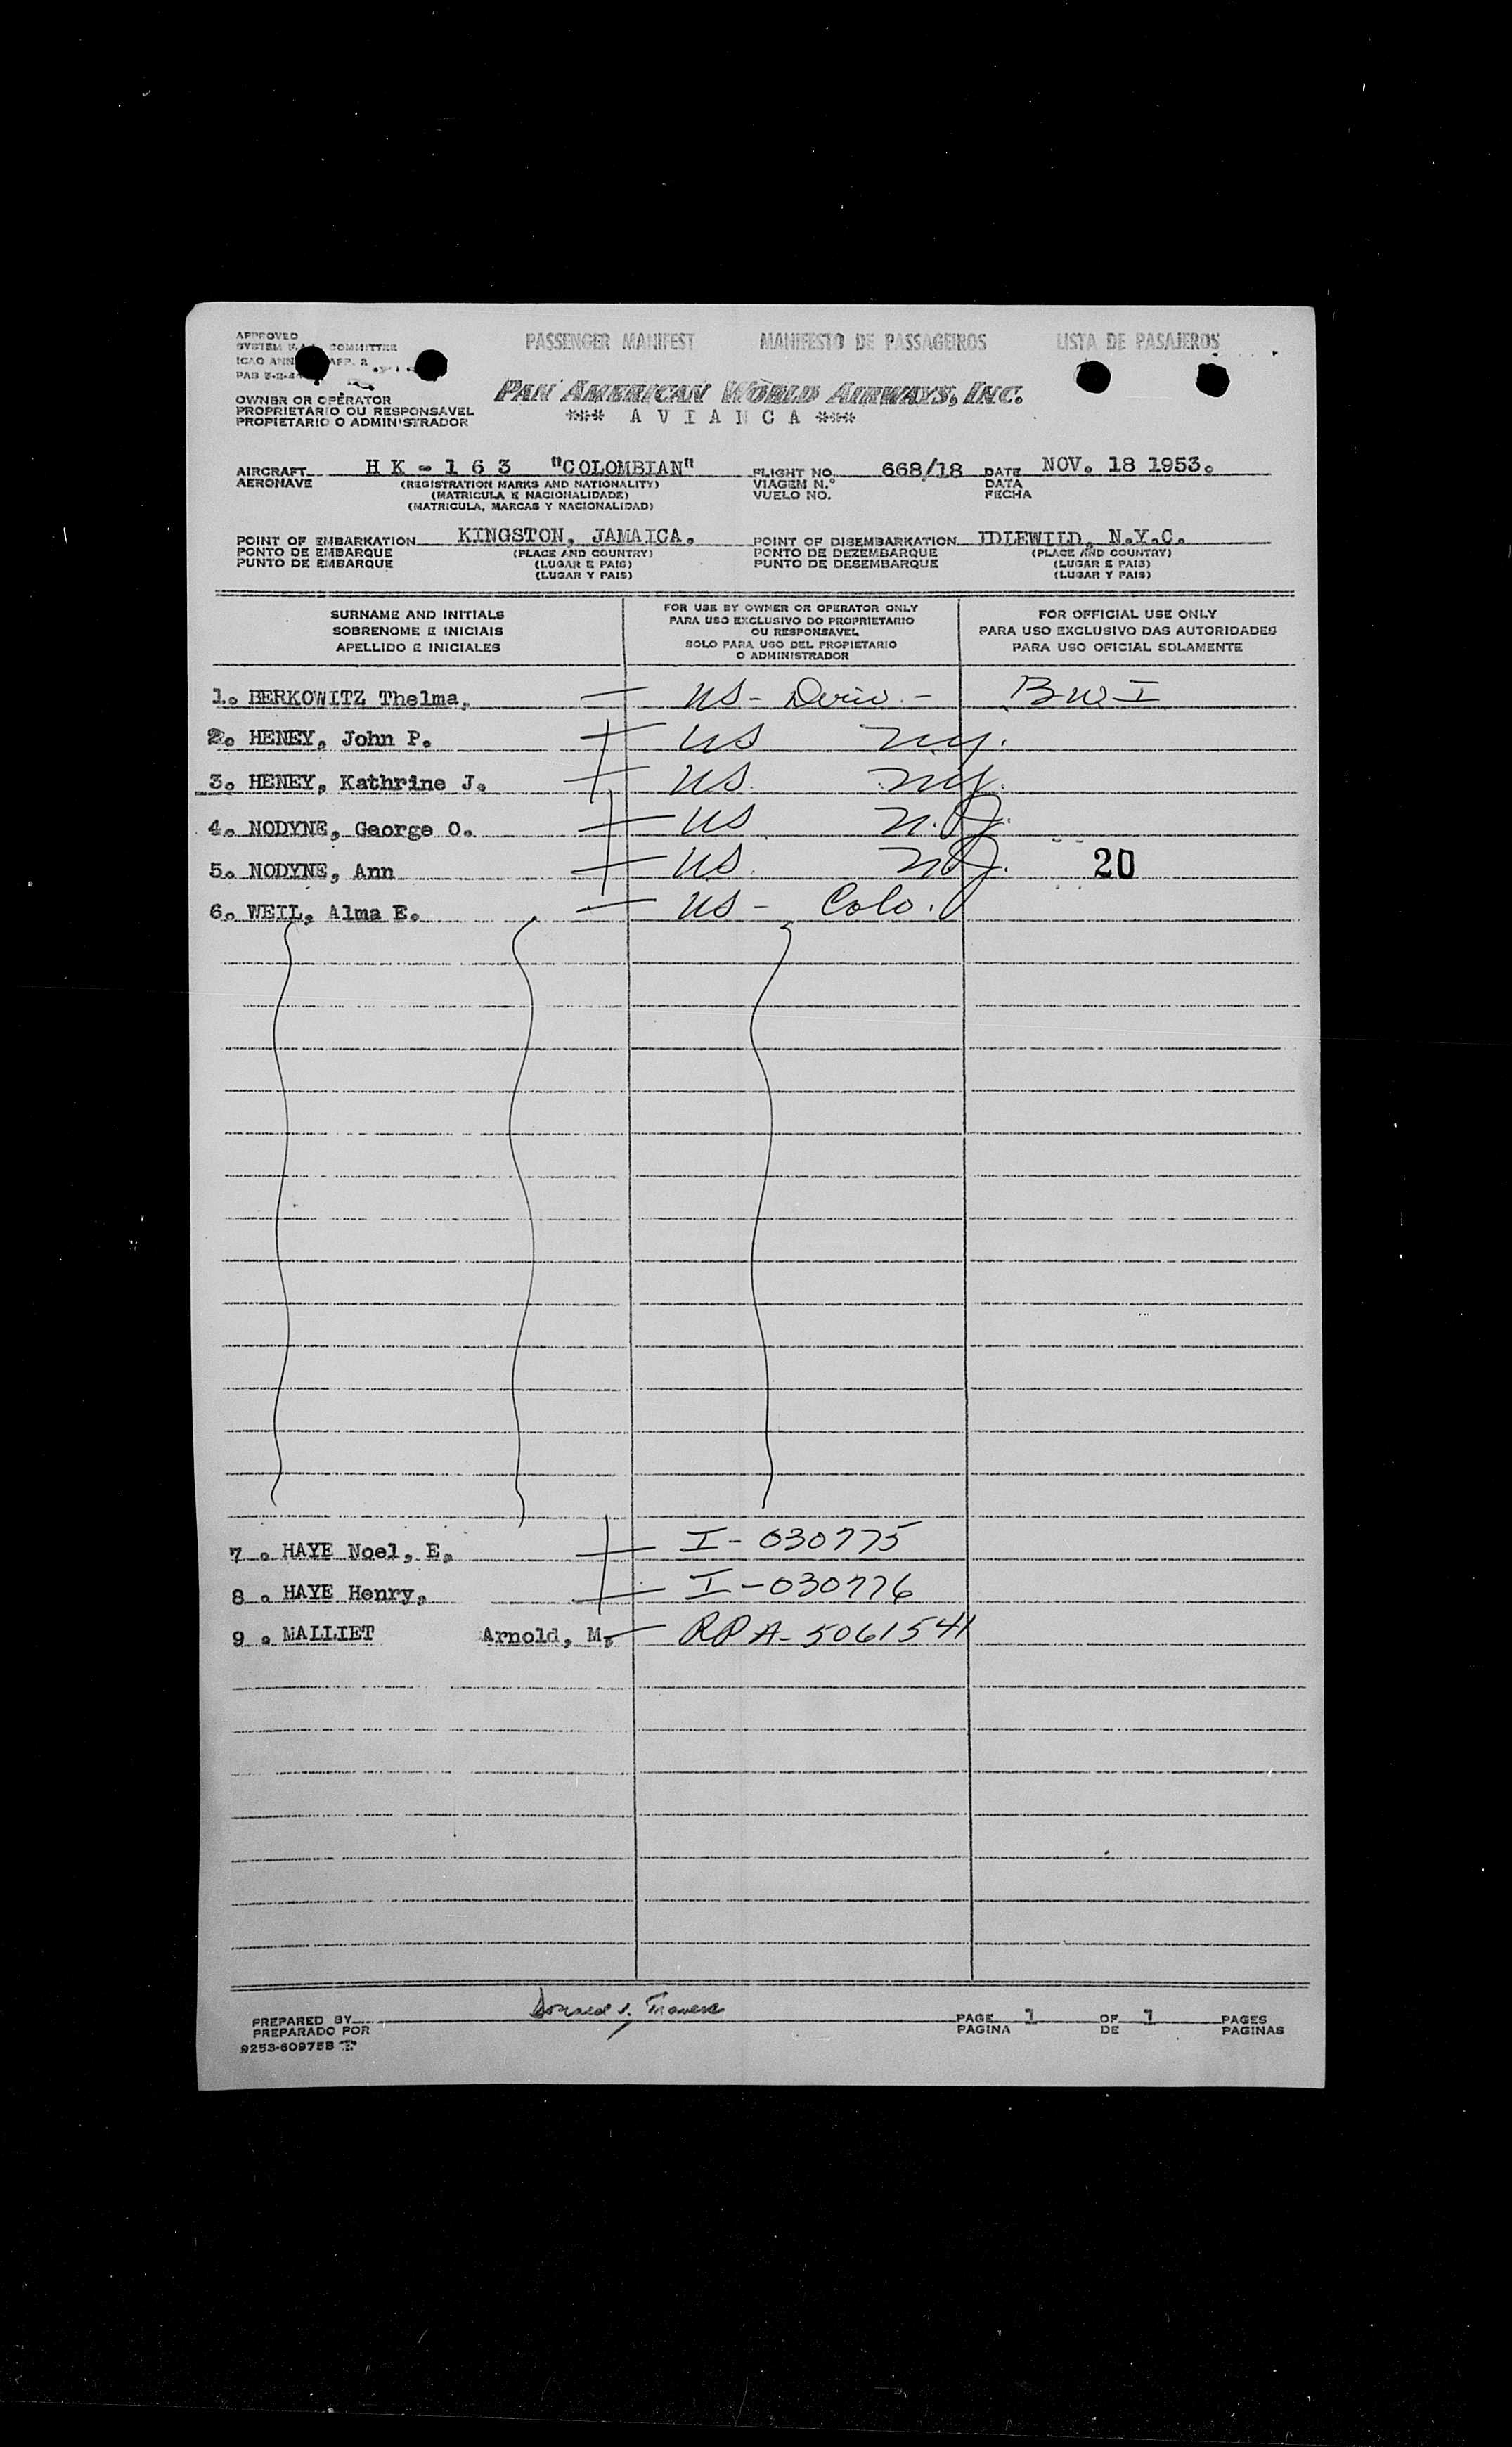 APPROVED
SYSTEM COMMITTEE
ICAO ANN APP. 2
PAB
PASSENGER MANIFEST MANIFESTO DE PASSAGEIROS LISTA DE PASAJEROS
PAN AMERICAN WORLD AIRWAYS, INC.
*** A V I A N C A ***
OWNER OR OPERATOR
PROPRIETARIO OU RESPONSAVEL
PROPIETARIO O ADMINISTRADOR
AIRCRAFT H K - 1 6 3 "COLOMBIAN" FLIGHT NO. 668/18 DATE NOV. 18 1953.
AERONAVE (REGISTRATION MARKS AND NATIONALITY) VIAGEM N.° DATA
(MATRICULA E NACIONALIDADE) VUELO NO. FECHA
(MATRICULA, MARCAS Y NACIONALIDAD)
POINT OF EMBARKATION KINGSTON, JAMAICA. POINT OF DISEMBARKATION IDLEWILD, N.Y.C.
PONTO DE EMBARQUE (PLACE AND COUNTRY) PONTO DE DEZEMBARQUE (PLACE AND COUNTRY)
PUNTO DE EMBARQUE (LUGAR E PAIS) PUNTO DE DESEMBARQUE (LUGAR E PAIS)
(LUGAR Y PAIS) (LUGAR Y PAIS)
SURNAME AND INITIALS
SOBRENOME E INICIAIS
APELLIDO E INICIALES
FOR USE BY OWNER OR OPERATOR ONLY
PARA USO EXCLUSIVO DO PROPRIETARIO
OU RESPONSAVEL
SOLO PARA USO DEL PROPIETARIO
O ADMINISTRADOR
FOR OFFICIAL USE ONLY
PARA USO EXCLUSIVO DAS AUTORIDADES
PARA USO OFICIAL SOLAMENTE
1. BERKOWITZ Thelma, US - - BWI
2. HENEY, John P. US N.Y.
3. HENEY, Kathrine J. US. N.Y.
4. NODYNE, George O. US N.J.
5. NODYNE, Ann US. N.J. 20
6. WEIL, Alma E. US - Colo.
7 . HAYE Noel, E, I-030775
8 . HAYE Henry, I-030776
9 . MALLIET Arnold, M, RPA-5061541
PREPARED BY PAGE 1 OF 1 PAGES
PREPARADO POR PAGINA DE PAGINAS
9253-60975B